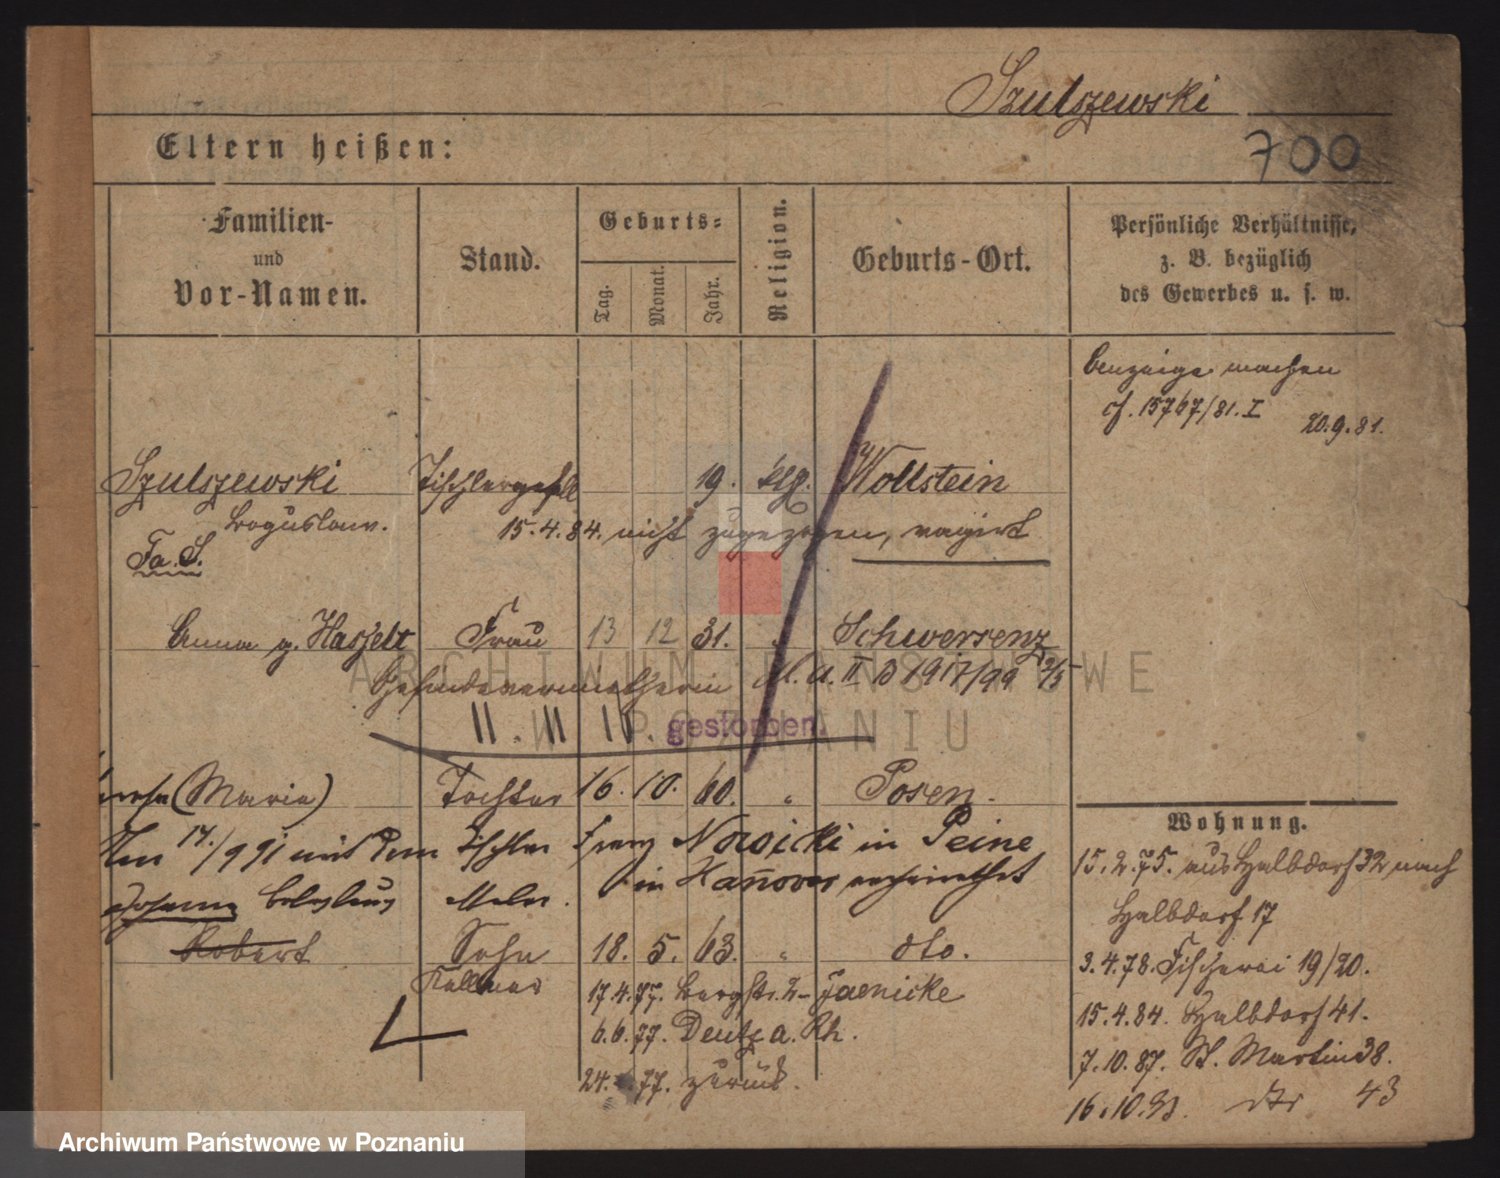 Szulszewski
700
Eltern heißen:
Familien-
und
Vor-Namen.
Stand.
Geburts-
Tag.
Monat.
Jahr.
Religion.
Geburts-Ort.
Persönliche Verhältnisse,
z. B. bezüglich
des Gewerbes u. s. w.
Anzeige machen
cf. 15767/81. I
20.9.81.
Szulszewski Tischlergesell 19. klg. Wollstein
Boguslaw. 15.4.84. nicht zugezogen, vagirt
Fa. S.
Anna g. Haszelt Frau 13 12 31. " Schwersenz
Gesindevermietherin M.A. II B 1917/99
II. III IV. gestorben.
(Maria) Tochter 16. 10. 60. " Posen.
mit dem Tischler Franz Nowicki in Peine
in Hannover verheirathet
Robert Sohn 18. 5. 63. " dto.
Kellner 17.4.77. Bergstr. 2 - Jaenicke
6.6.77. Deutz a. Rh.
24. 77. zurück.
Wohnung.
15.2.75. aus Halbdorf 32 nach
Halbdorf 17
3.4.78. Fischerei 19/20.
15.4.84. Halbdorf 41.
7.10.87. St. Martin 38.
16.10. dto 43
ARCHIWUM PAŃSTWOWE
W POZNANIU
Archiwum Państwowe w Poznaniu